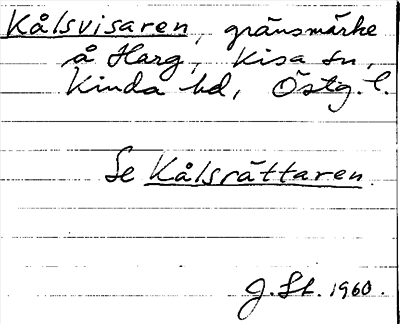 Kålsvisaren, gränsmärke
å Harg, Kisa sn,
Kinda hd, Östg. l.
Se Kålsrättaren
J. St. 1960.